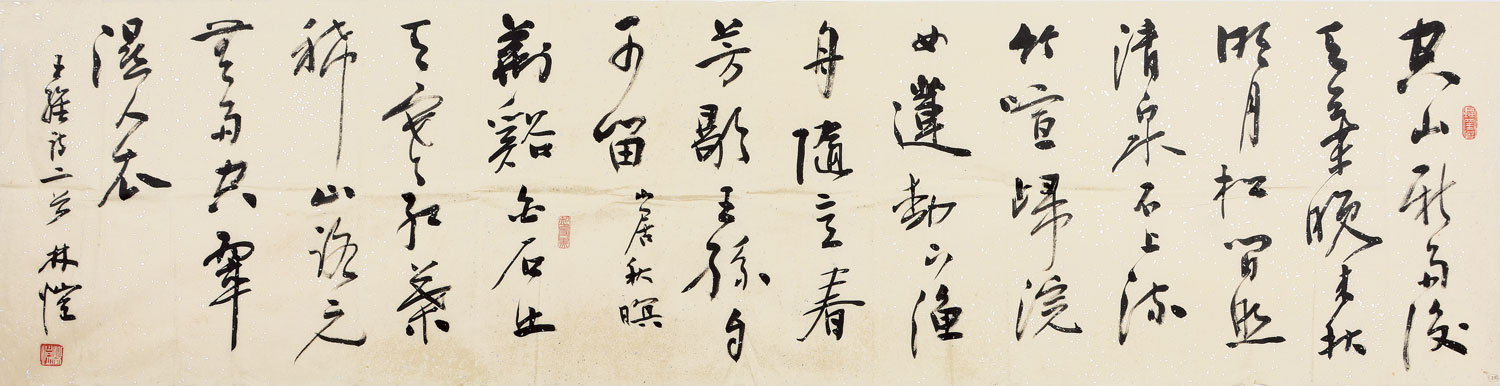 空山新雨後
天氣晚来秋
明月松間照
清泉石上流
竹喧歸浣
女蓮動下漁
舟隨意春
芳歇王孫自
可留
山居秋暝
荆谿白石出
天寒紅葉
稀山路元
無雨空翠
濕人衣
王維詩二首 林愷